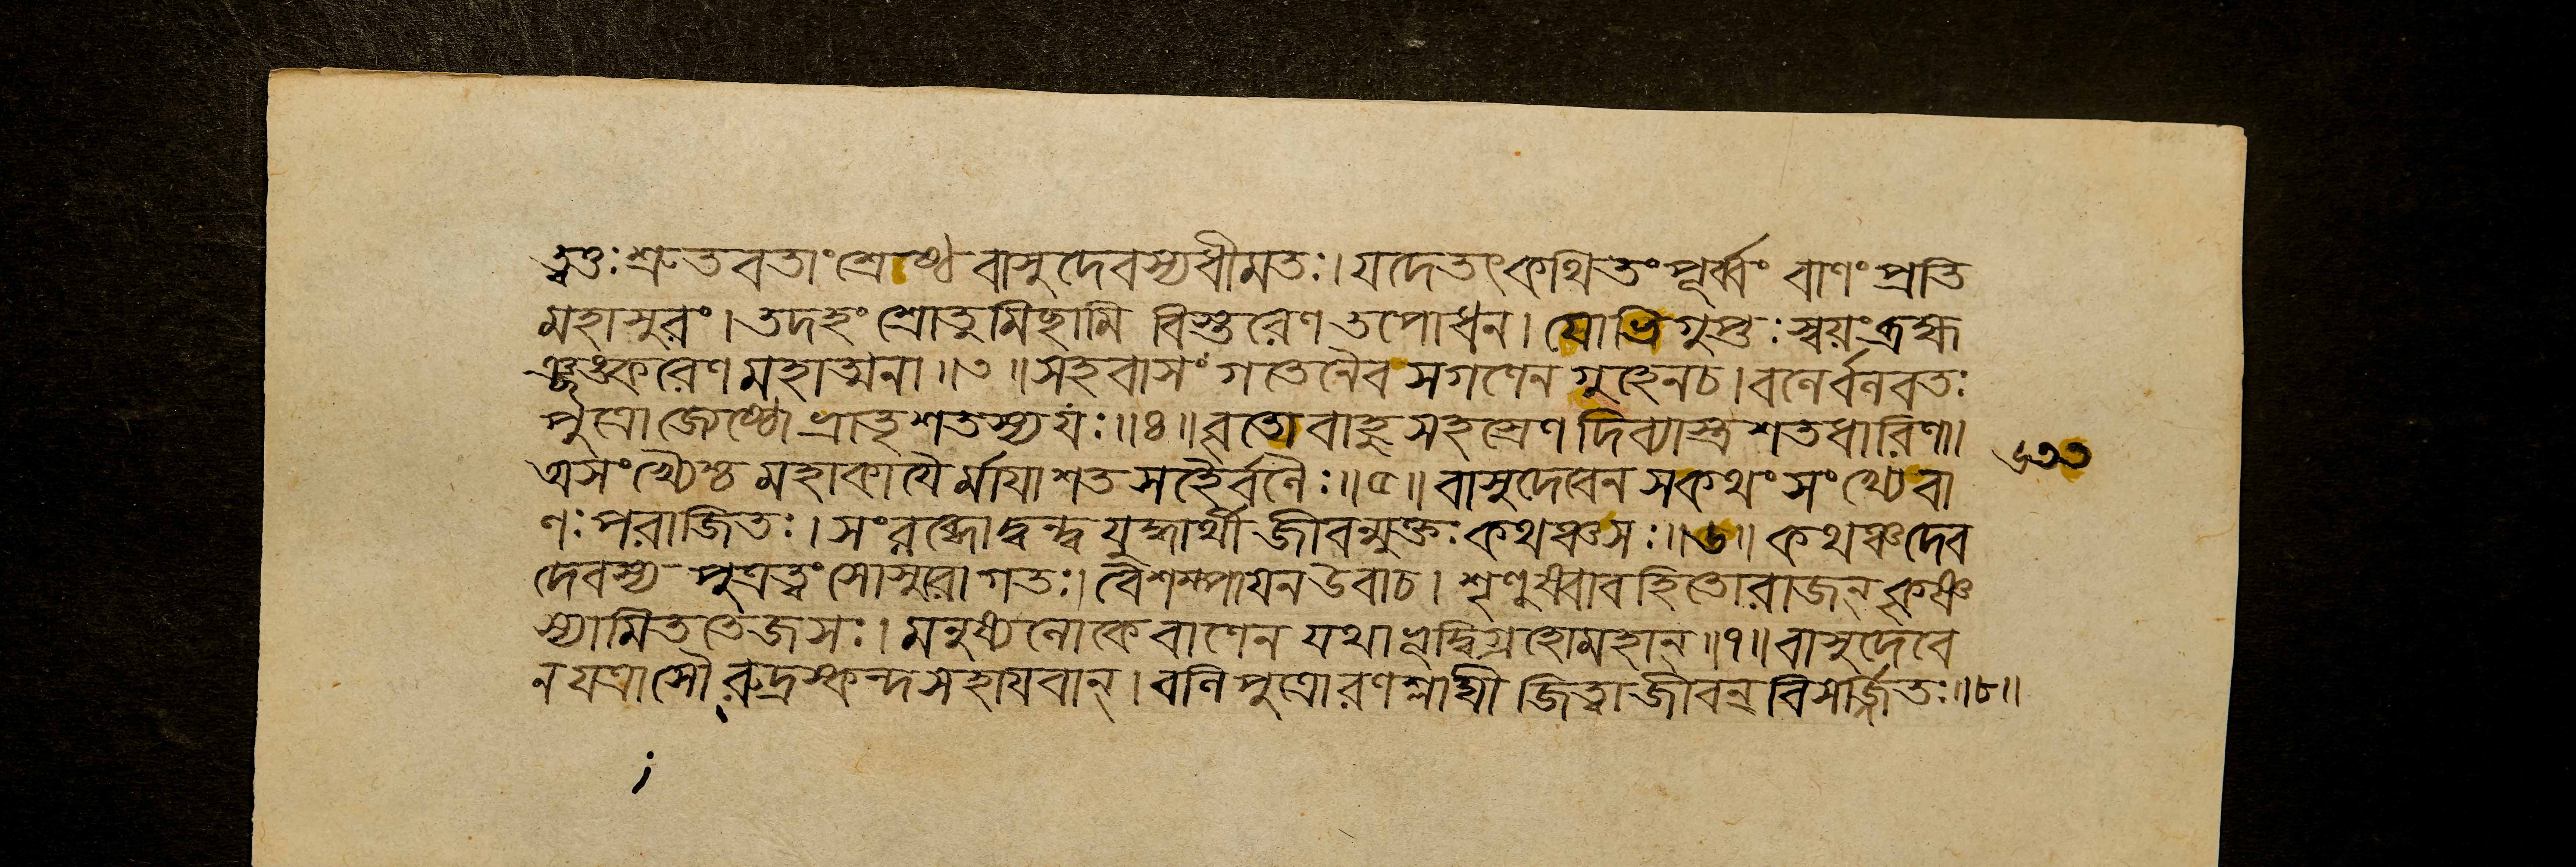 ত্তঃ শ্রুতবতাং শ্রেষ্ঠ বাসুদেবস্য ধীমতঃ। যদেতৎ কথিতং পূর্ব্বং বাণং প্রতি
মহাসুরং। তদহং শ্রোতুমিছামি বিস্তরেণ তপোধন। যোভিগুপ্তঃ স্বয়ং ব্রহ্ম
শঙ্করেণ মহাত্মনা॥৩॥ সহবাসং গতেনৈব সগণেন গুহেন চ। বলের্বলবতঃ
পুত্রো জ্যেষ্ঠো ভ্রাতৃশতস্য যঃ॥৪॥ বৃতো বাহুসহস্রেণ দিব্যাস্ত্রশতধারিণা।
অসংখ্যৈশ্চ মহাকায়ৈর্মায়াশতসহৈর্বলৈঃ॥৫॥ বাসুদেবেন স কথং সংখ্যে বা
ণঃ পরাজিতঃ। সংরব্ধো দ্বন্দ্বযুদ্ধার্থী জীবন্মুক্তঃ কথঞ্চ সঃ॥৬॥ কথঞ্চ দেব
দেবস্য পুত্রত্বং সোসুরো গতঃ। বৈশম্পায়ন উবাচ। শৃণুষ্বাবহিতো রাজন্ কৃষ্ণ
স্যামিততেজসঃ। মনুষ্যলোকে বাণেন যথাভূদ্বিগ্রহো মহান্॥৭॥ বাসুদেবে
ন যত্রাসৌ রুদ্রস্কন্দসহায়বান্। বলিপুত্রো রণশ্লাঘী জিত্বা জীবন্ বিসর্জ্জিতঃ॥৮॥